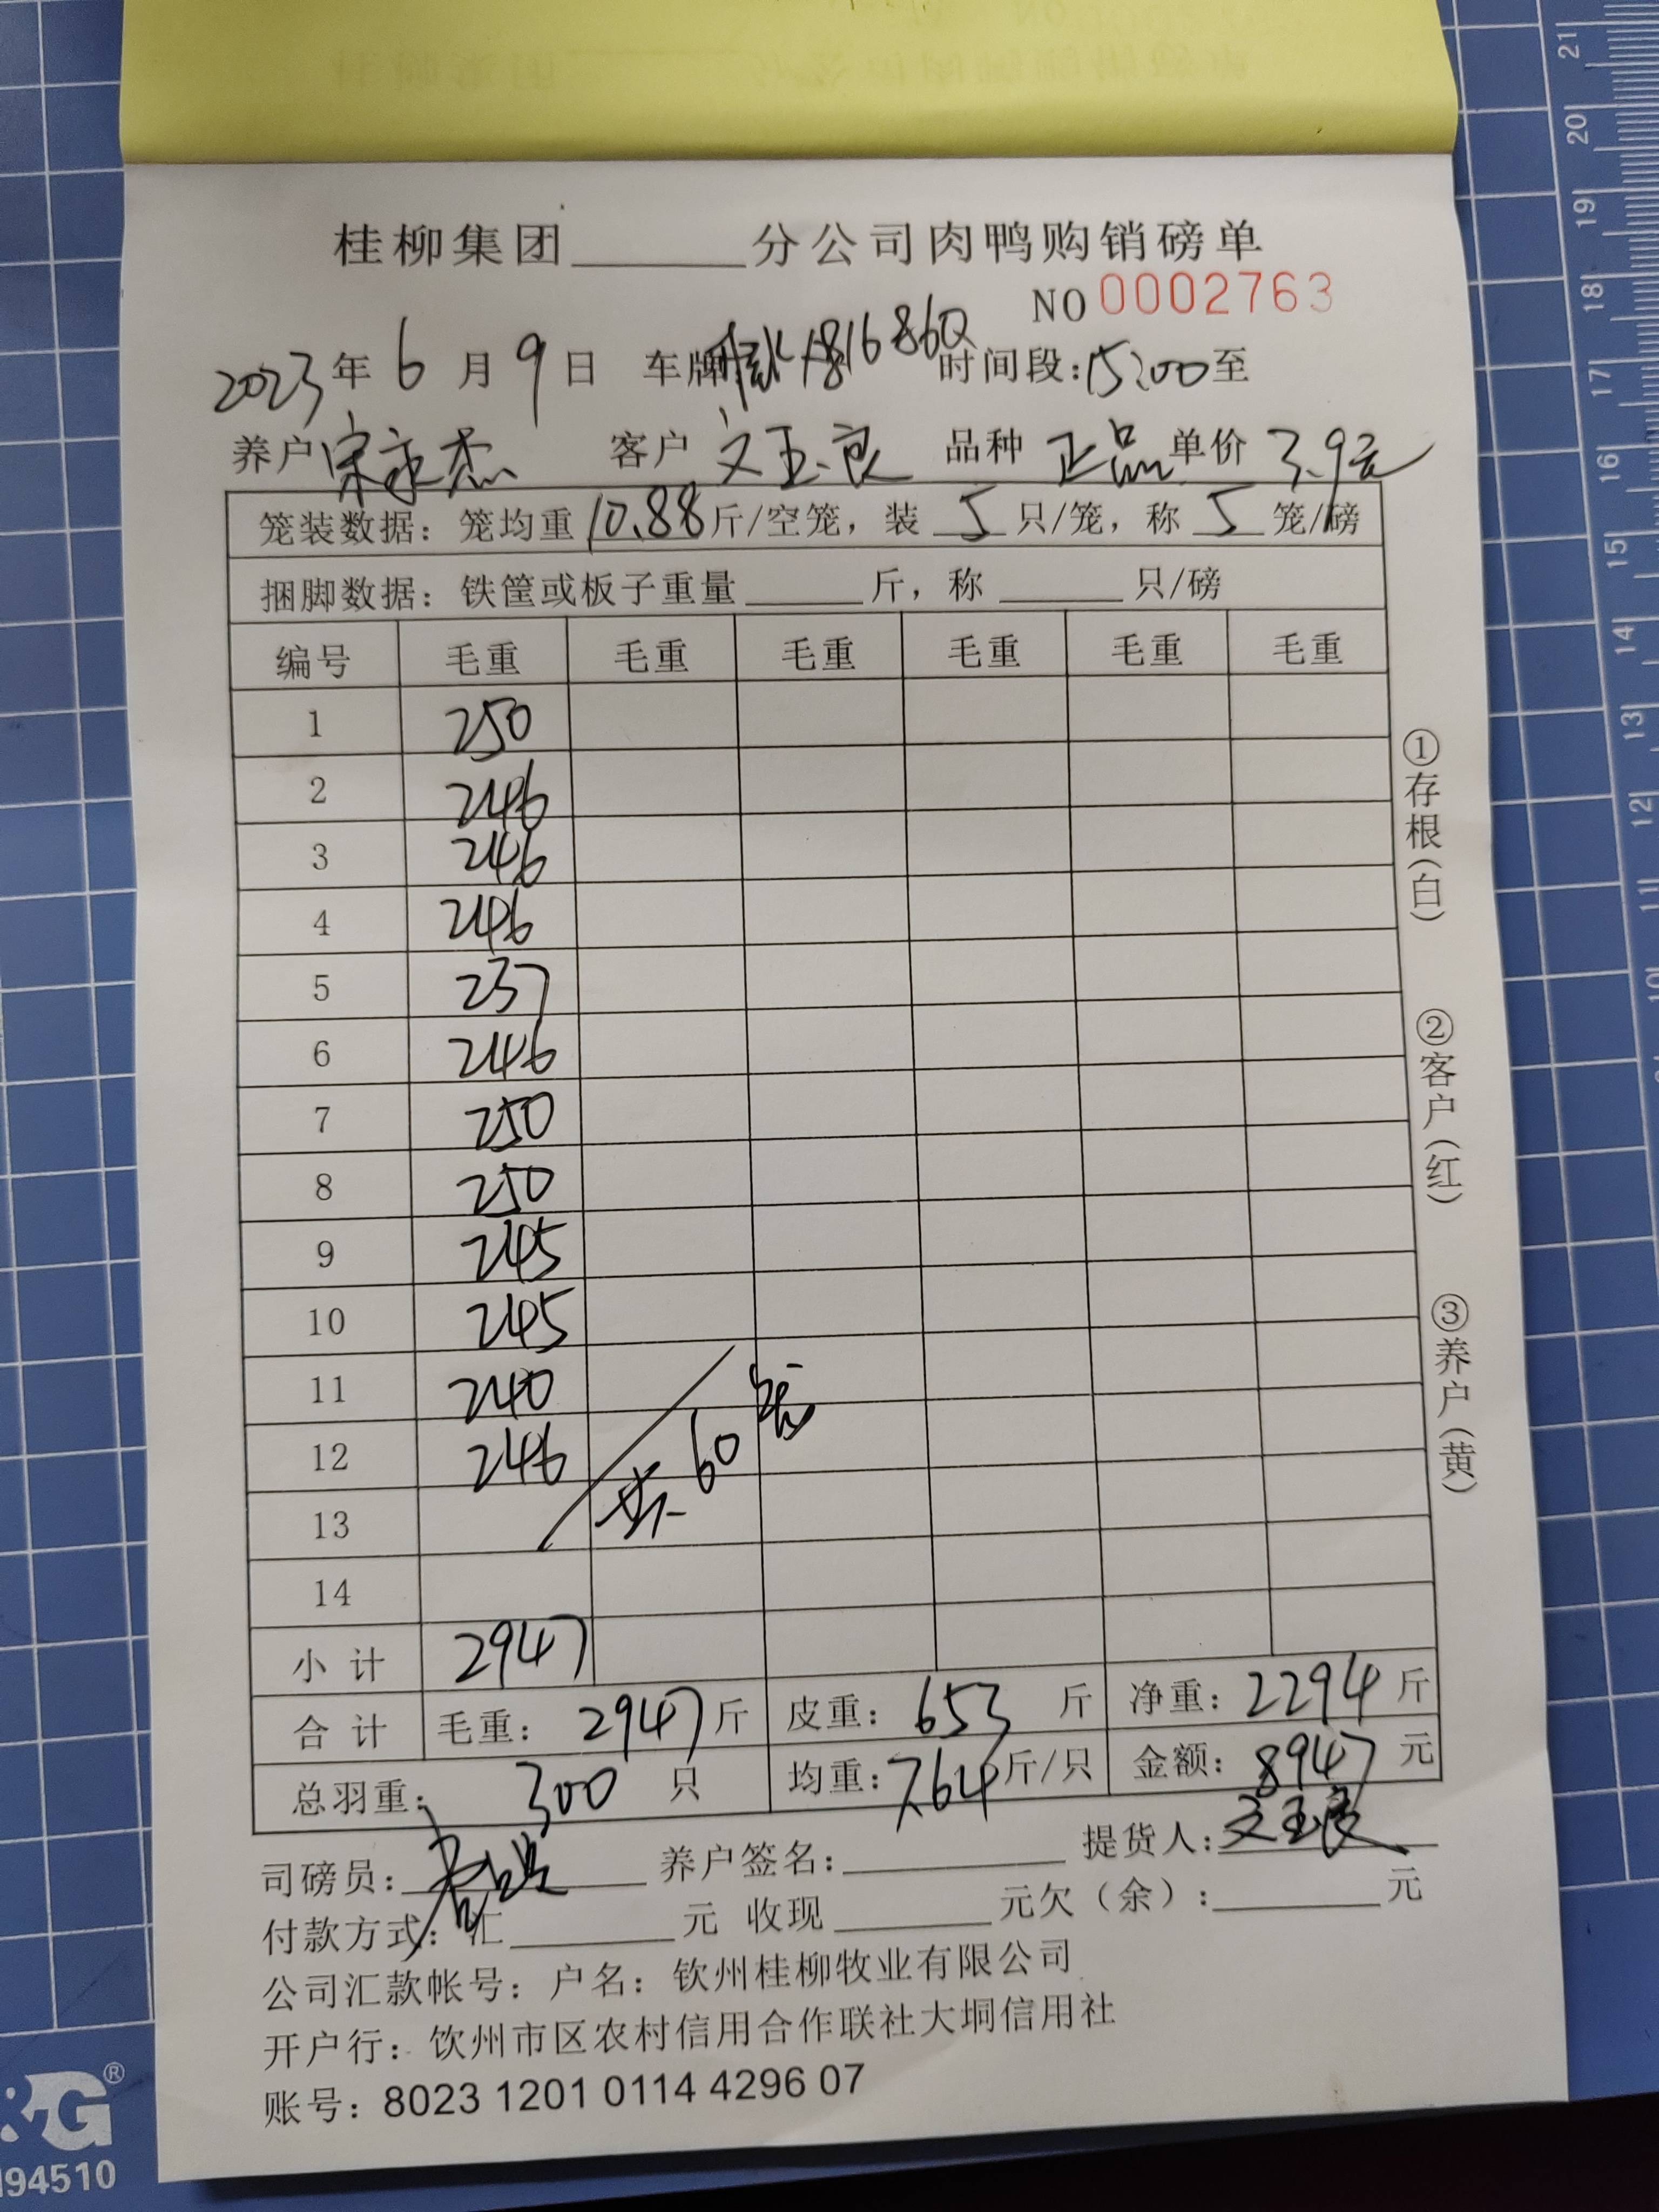 桂柳集团______分公司肉鸭购销磅单
NO 0002763
2023年6月9日 车牌 时间段:15:00至
养户 宋永杰 客户 文玉良 品种 正品 单价 3.9元
笼装数据：笼均重10.88斤/空笼，装 5 只/笼，称 5 笼/磅
捆脚数据：铁筐或板子重量______斤，称______只/磅
编号 毛重 毛重 毛重 毛重 毛重 毛重
1 250
2 246
3 246
4 246
5 237
6 246
7 250
8 250
9 245
10 245
11 240
12 246
共60笼
13
14
小计 2947
合计 毛重：2947斤 皮重：653斤 净重：2294斤
总羽重：300只 均重：7.64斤/只 金额：8947元
司磅员： 养户签名：______ 提货人：文玉良
付款方式：汇______元 收现______元欠（余）：______元
公司汇款帐号：户名：钦州桂柳牧业有限公司
开户行：饮州市区农村信用合作联社大垌信用社
账号：8023 1201 0114 4296 07
①存根（白）
②客户（红）
③养户（黄）
&G®
94510
21
20
19
18
17
16
15
14
13
12
11
10